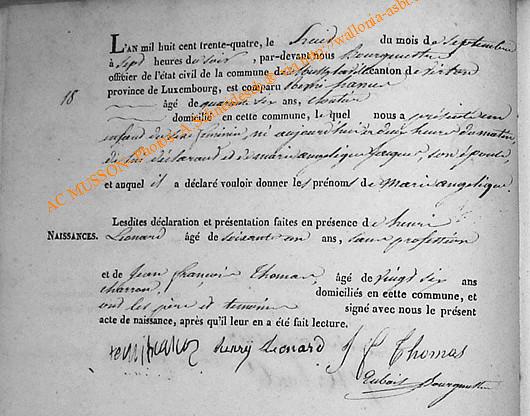 L'AN mil huit cent trente-quatre, le huit du mois de septembre
à sept heures du soir, par-devant nous Bourguignon
officier de l'état civil de la commune de canton de virton
province de Luxembourg, est comparu
18
âgé de quarante six ans,
domicilié en cette commune, lequel nous a présenté un
enfant du sexe féminin, né aujourd'hui à deux heures du matin
de lui déclarant et de marie angelique Jaques, son épouse
et auquel il a déclaré vouloir donner les prénoms de Marie angelique.
Lesdites déclaration et présentation faites en présence de henri
NAISSANCES. Léonard âgé de soixante un ans, sans profession
et de Jean françois Thomas, âgé de vingt six ans
charron, domiciliés en cette commune, et
ont les père et temoins signé avec nous le présent
acte de naissance, après qu'il leur en a été fait lecture.
henry leonard J f Thomas
AC MUSSON
http://wallonia-asbl